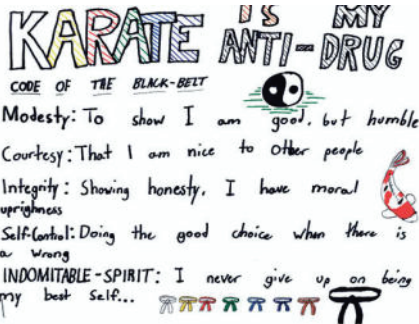 KARATE IS MY
ANTI-DRUG
CODE OF THE BLACK-BELT
Modesty: To show I am good, but humble
Courtesy: That I am nice to other people
Integrity: Showing honesty, I have moral
uprighness
Self-Control: Doing the good choice when there is
a wrong
INDOMITABLE-SPIRIT: I never give up on being
my best self...